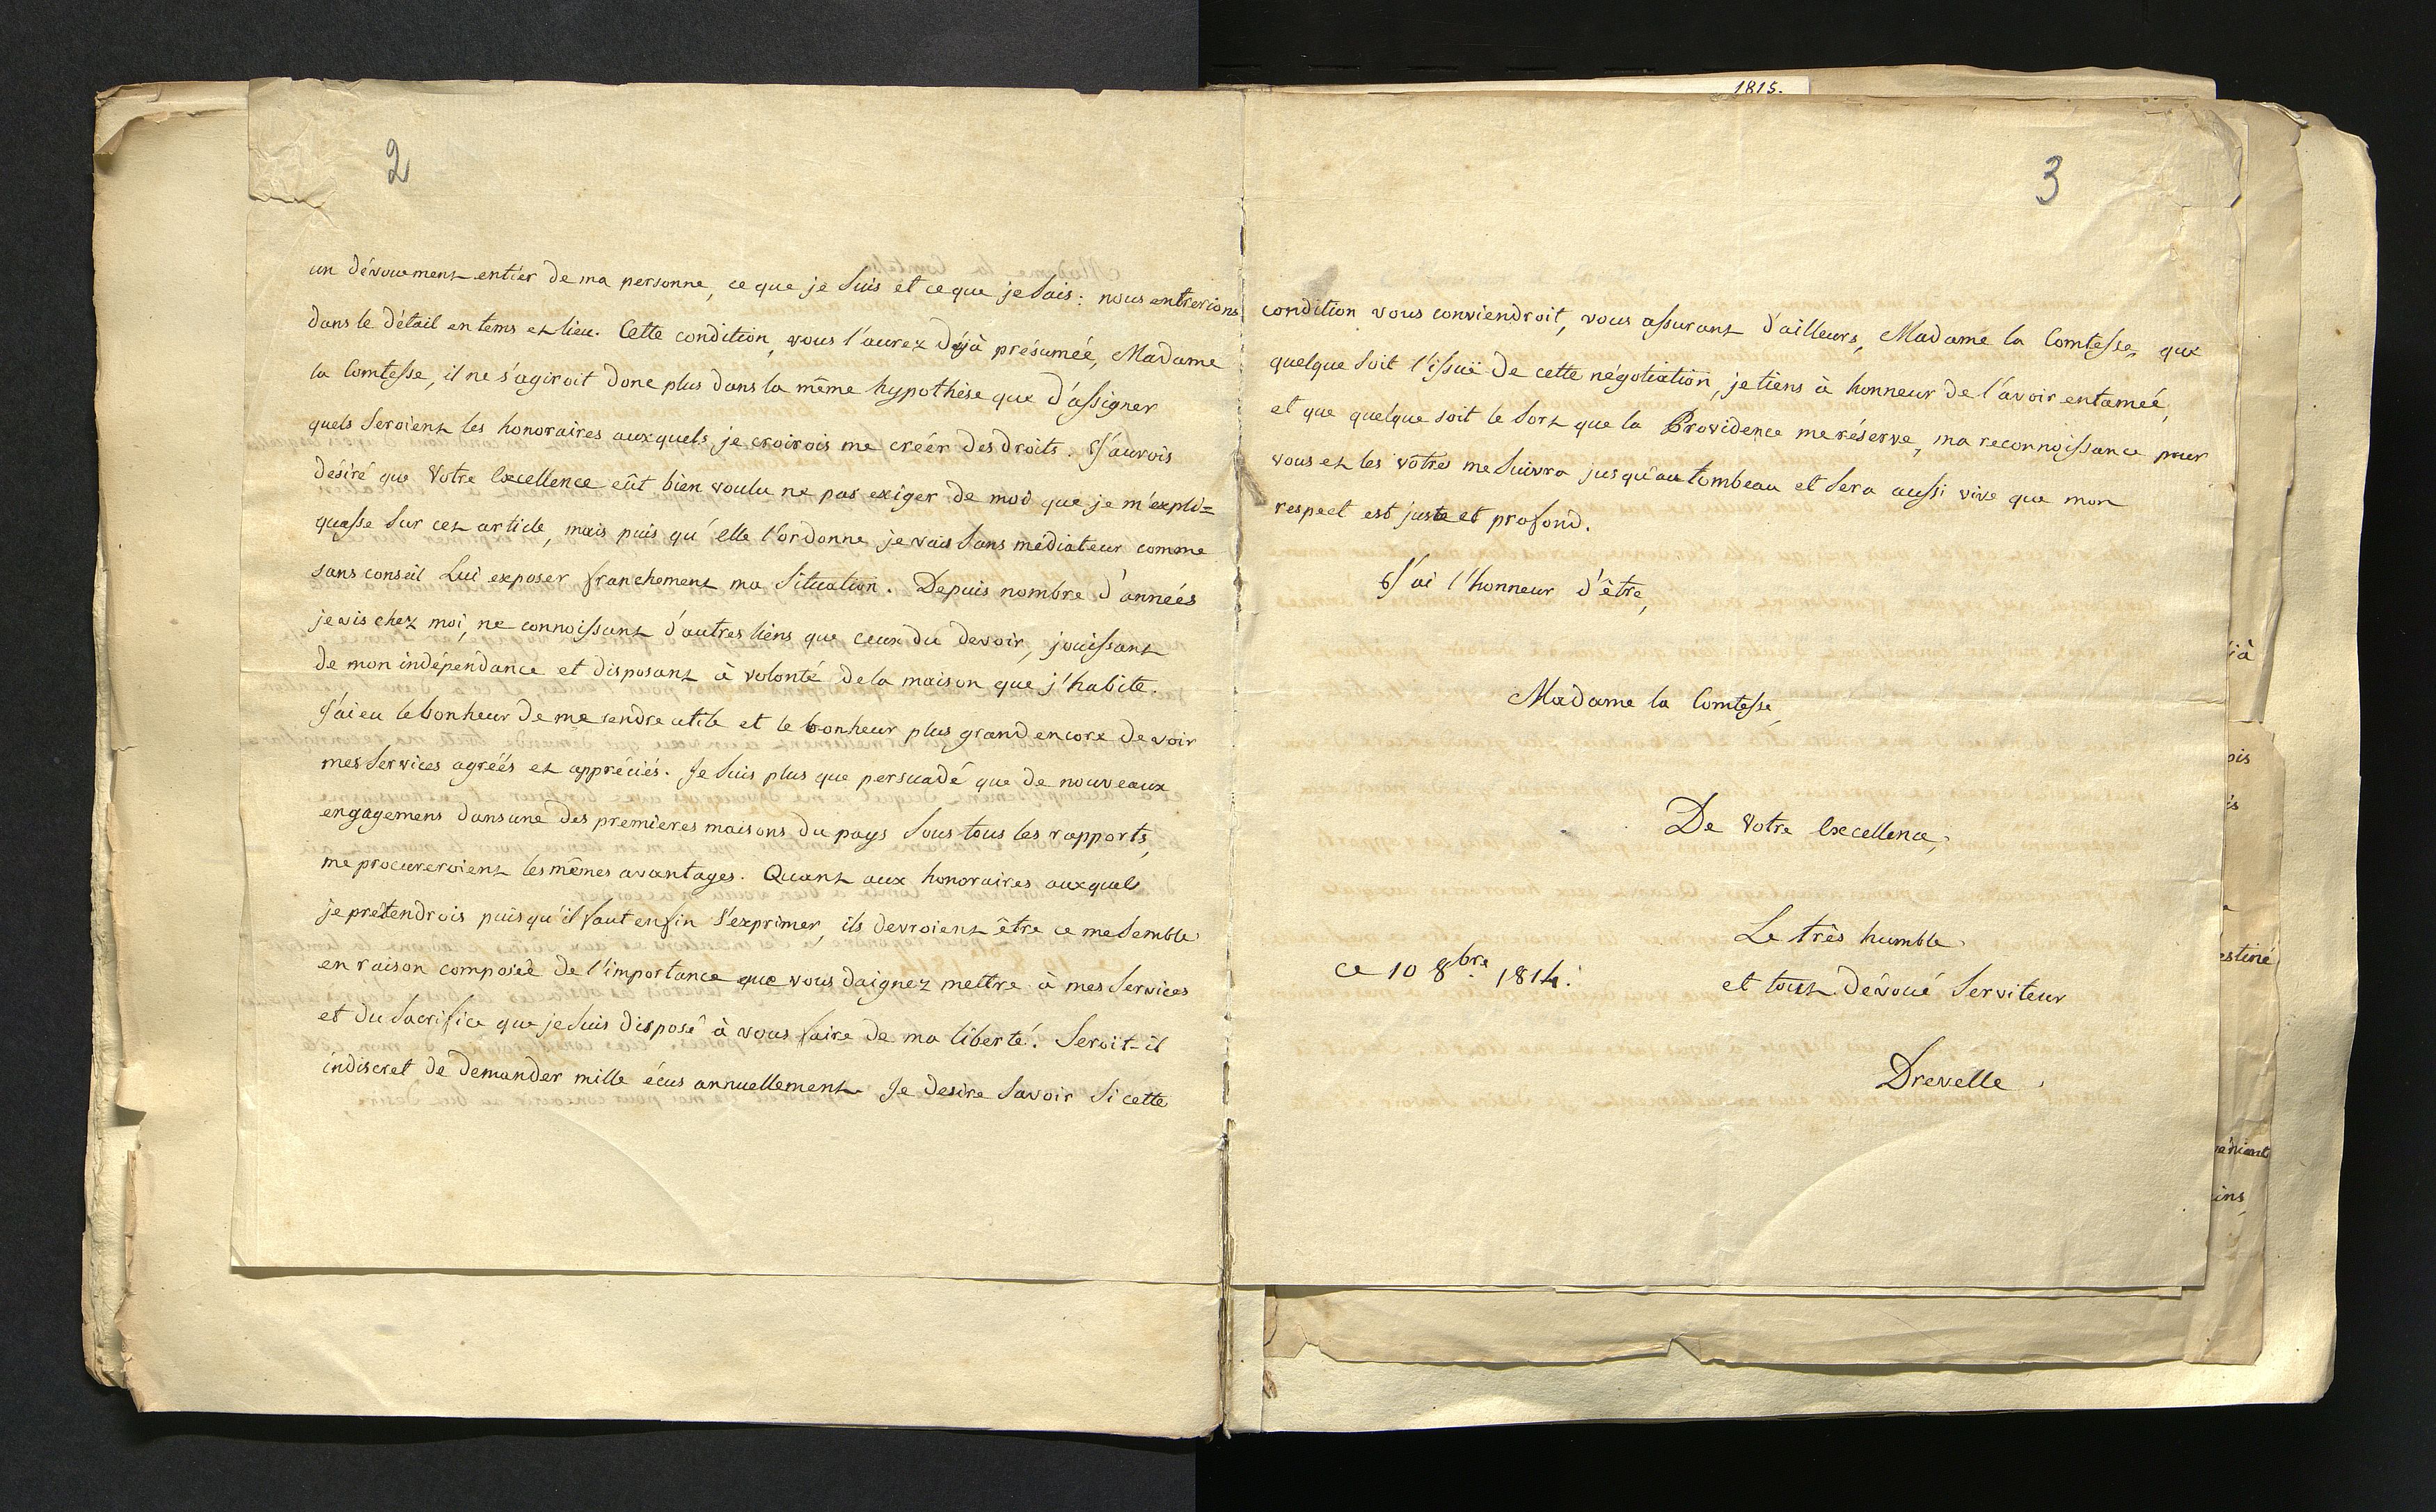 2
un dévouement entier de ma personne, ce que je suis et ce que je sais : nous entrerions
dans le détail en tems et lieu. Cette condition, vous l'aurez déjà présumée, Madame
la Comtesse, il ne s'agiroit donc plus dans la même hypothèse que d'assigner
quels seroient les honoraires auxquels je croirois me créer des droits. J'aurois
désiré que Votre Excellence eût bien voulu ne pas exiger de moi que je m'expli=
quasse sur cet article, mais puis qu'elle l'ordonne je vais sans médiateur comme
sans conseil Lui exposer franchement ma situation. Depuis nombre d'années
je vis chez moi, ne connoissant d'autres liens que ceux du devoir, jouissant
de mon indépendance et disposant à volonté de la maison que j'habite.
J'ai eu le bonheur de me rendre utile et le bonheur plus grand encore de voir
mes services agréés et appréciés. Je suis plus que persuadé que de nouveaux
engagemens dans une des premières maisons du pays sous tous les rapports,
me procureroient les mêmes avantages. Quant aux honoraires auxquels
je prétendrois puisqu'il faut enfin s'exprimer, ils devroient être ce me semble
en raison composée de l'importance que vous daignez mettre à mes services
et du sacrifice que je suis disposé à vous faire de ma liberté. Seroit-il
indiscret de demander mille écus annuellement. Je desire savoir si cette
1815.
3
condition vous conviendroit, vous assurant d'ailleurs, Madame la Comtesse, que
quelque soit l'issuë de cette négotiation, je tiens à honneur de l'avoir entamée,
et que quelque soit le sort que la Providence me réserve, ma reconnoissance pour
vous et les vôtres me suivra jusqu'au tombeau et sera aussi vive que mon
respect est juste et profond.
J'ai l'honneur d'être,
Madame la Comtesse,
De Votre Excellence,
Le très humble
et tout dévoué serviteur
ce 10 8bre 1814.
Drevelle